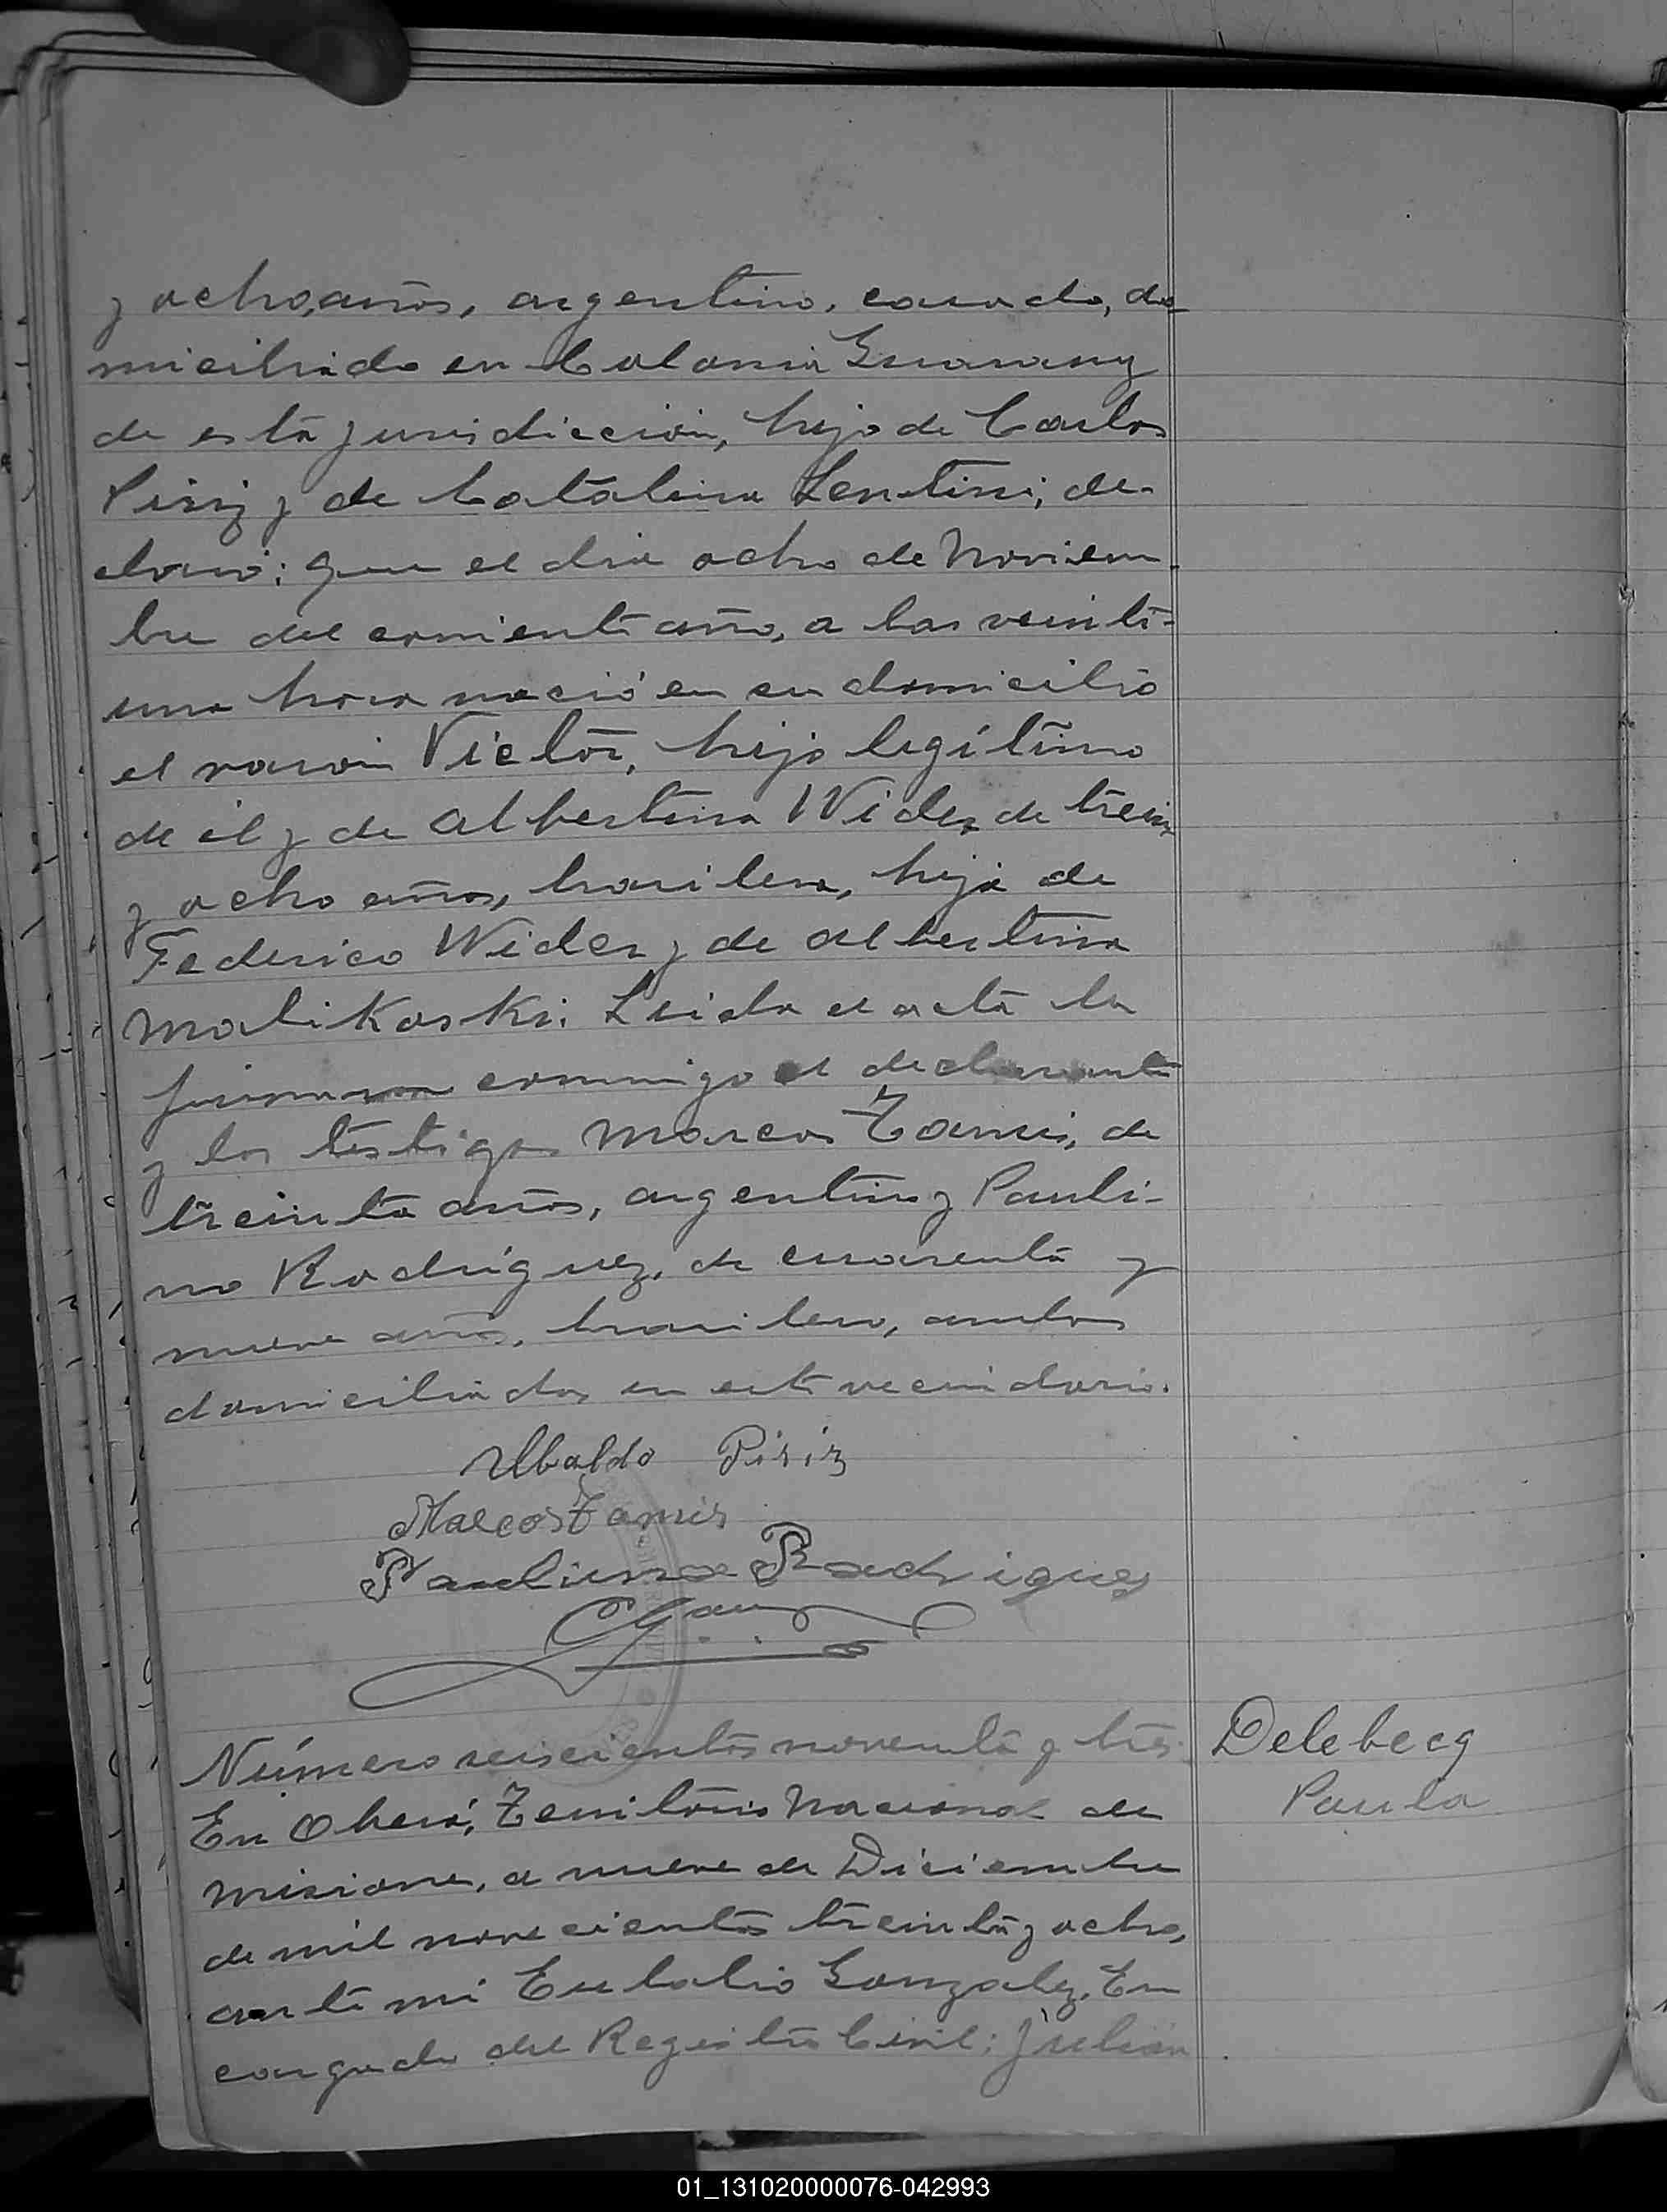 y ocho años, argentino, casado, do-
miciliado en Colonia Guarany
de esta jurisdicción, hijo de Carlos
Piriz y de Catalina Lentini; de-
claró: que el dia ocho de Noviem-
bre del corriente año, a las veinti-
una hora nació en su domicilio
el varón Victor, hijo legítimo
de él y de Albertina Wider, de trein
y ocho años, brasilera, hija de
Federico Wider y de Albertina
Malikoski. Leida el acta la
firmaron conmigo el declarante
y los testigos Marcos Tamis, de
treinta años, argentino y Pauli-
no Rodriguez, de cuarenta y
nueve años, brasilero, ambos
domiciliados en este vecindario.
Ubaldo Piriz
Marcos Tamis
Paulino Rodriguez
Número seiscientos noventa y tres.
En Oberá, Territorio Nacional de
Misiones, a nueve de Diciembre
de mil novecientos treinta y ocho,
ante mi Eulalio Gonzalez, En
cargado del Registro Civil: Julian
Delebecq
Paula
01_131020000076-042993